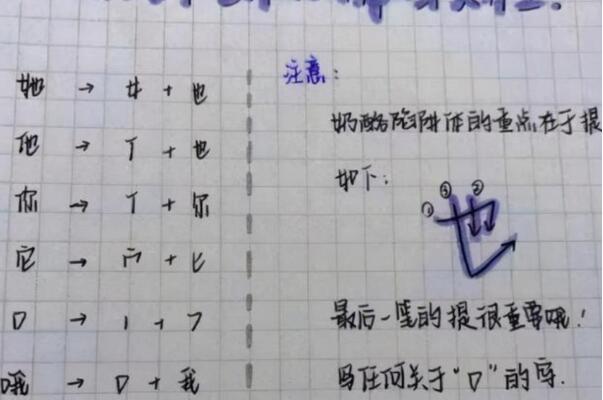 她 → 女 + 也
他 → 亻 + 也
你 → 亻 + 尔
它 → 宀 + 匕
口 → 丨 + ㇆
哦 → 口 + 我
注意:
奶酪陷阱体的重点在于提
如下:
① ③ ②
也
最后一笔的提很重要哦!
写任何关于“口”的字.